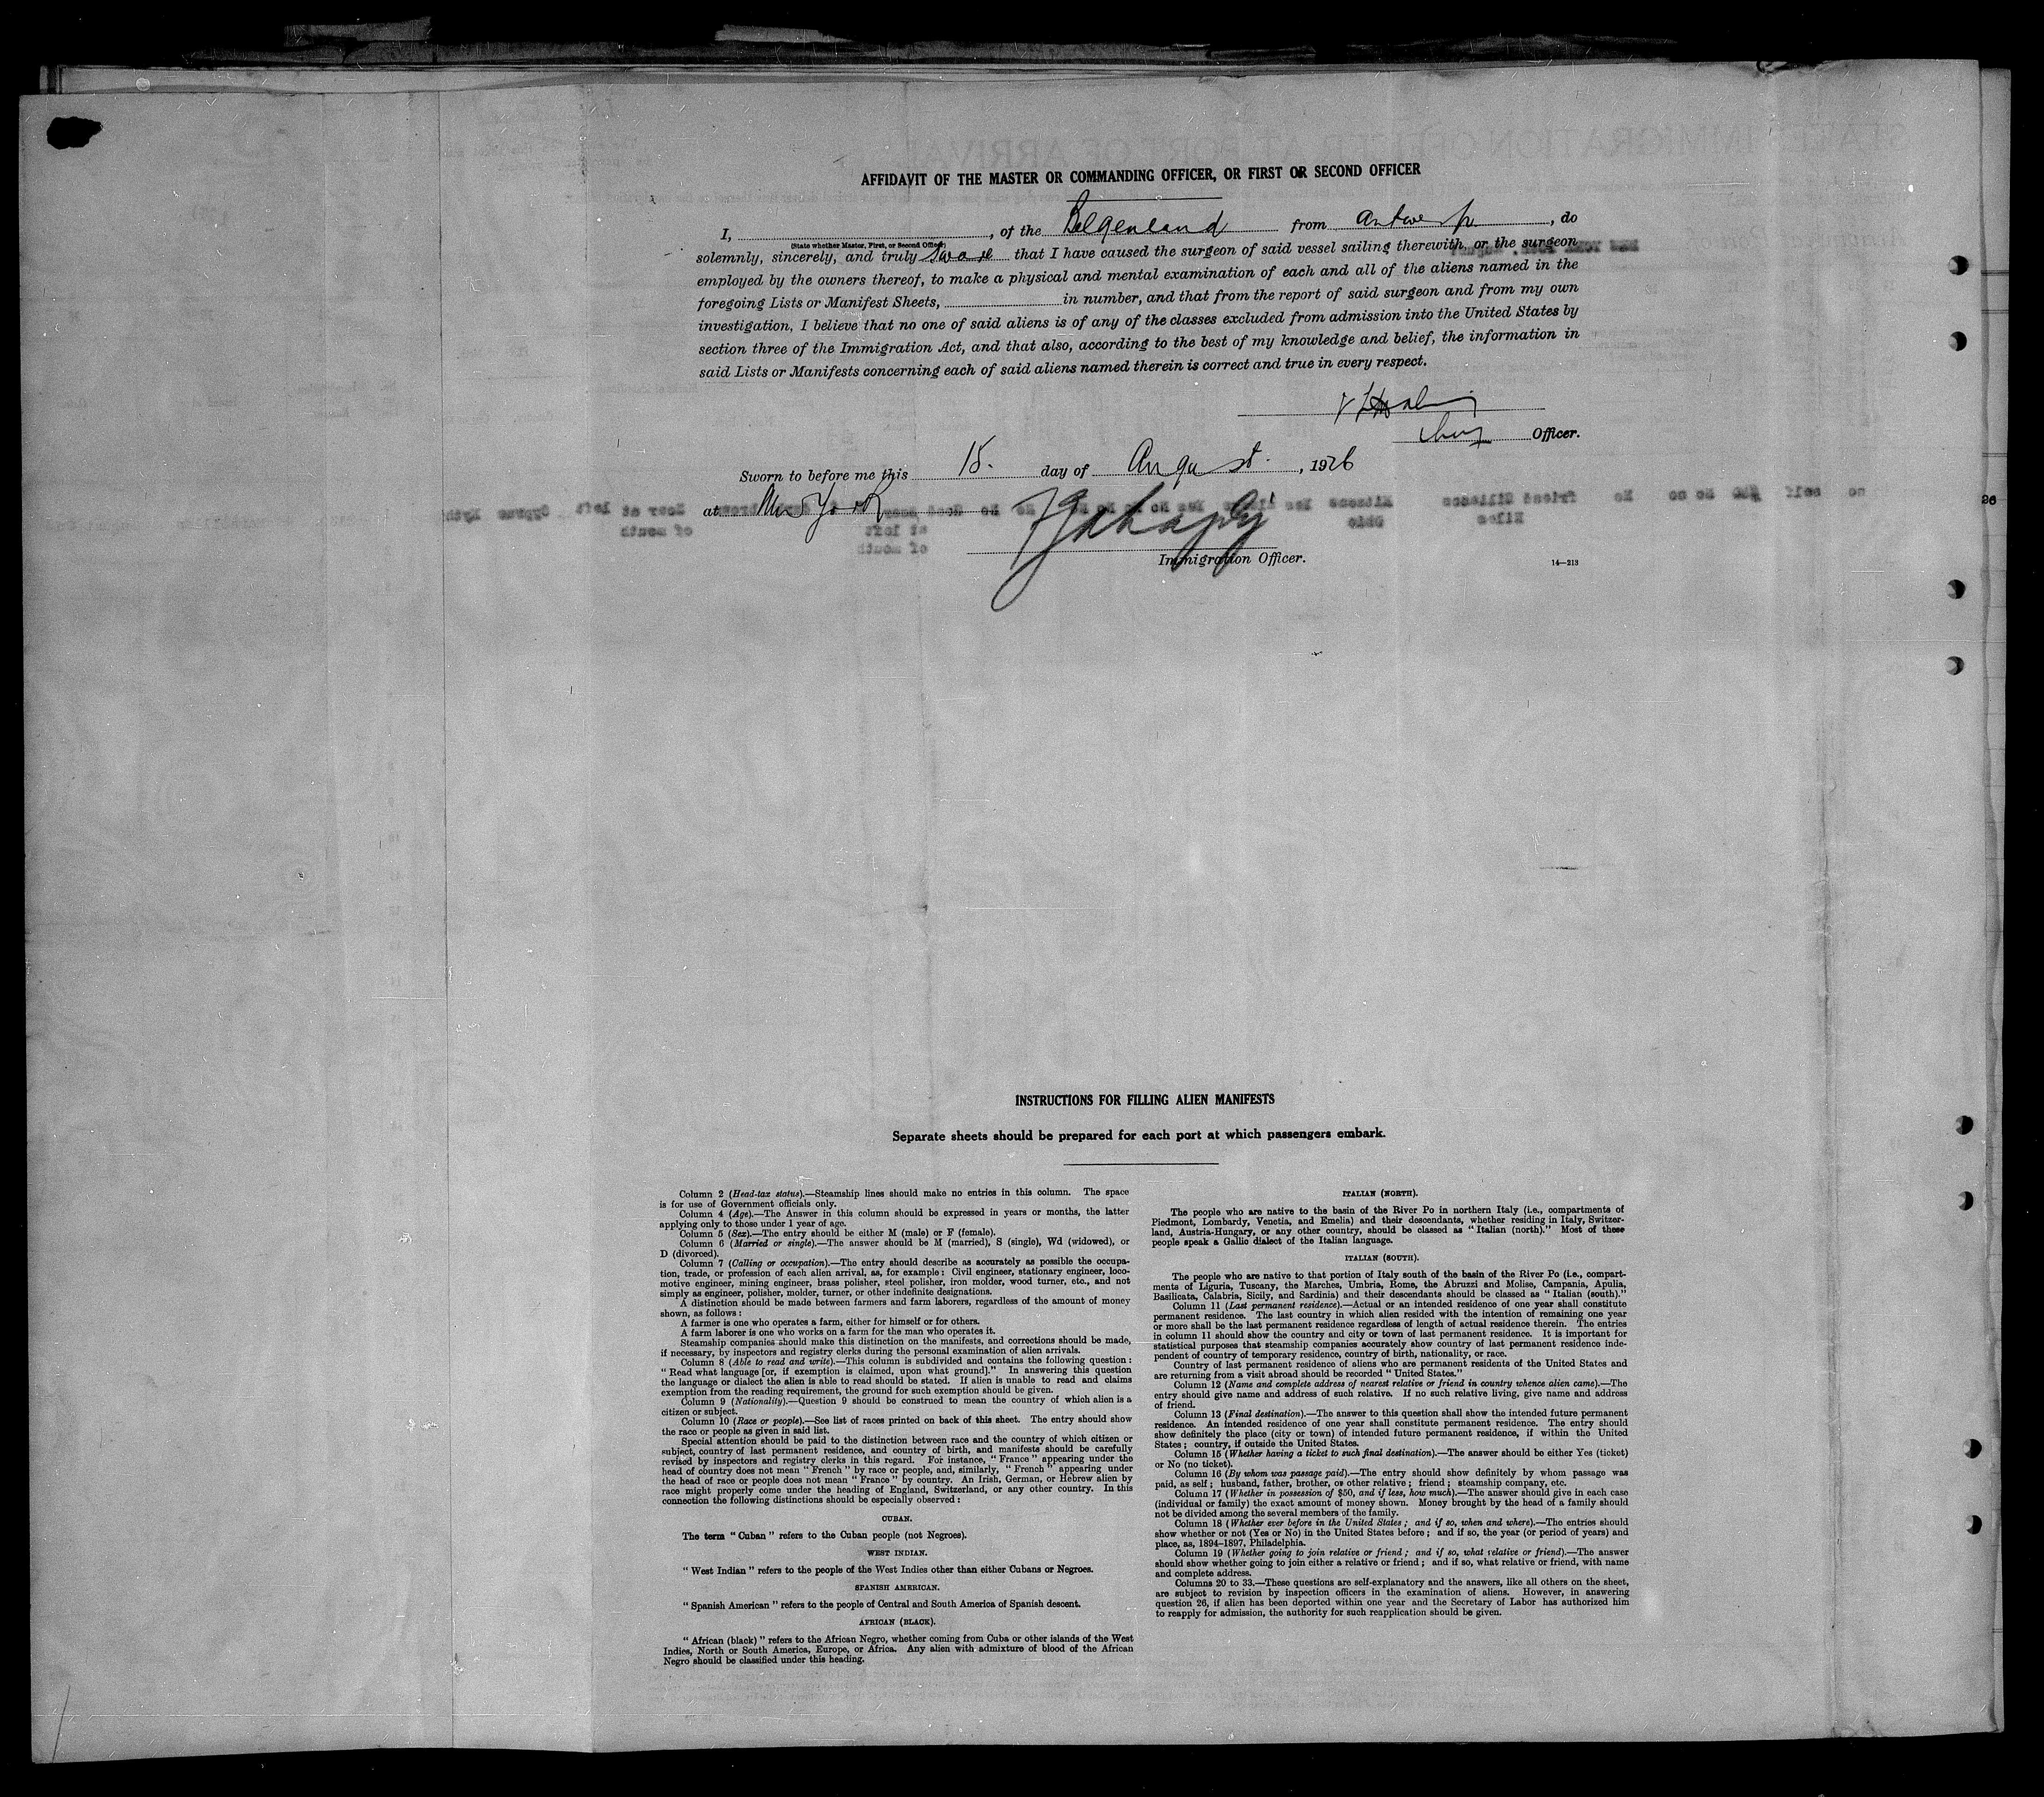 AFFIDAVIT OF THE MASTER OR COMMANDING OFFICER, OR FIRST OR SECOND OFFICER
I, , of the Belgenland from Antwerp , do
(State whether Master, First, or Second Officer)
solemnly, sincerely, and truly swear that I have caused the surgeon of said vessel sailing therewith, or the surgeon
employed by the owners thereof, to make a physical and mental examination of each and all of the aliens named in the
foregoing Lists or Manifest Sheets, in number, and that from the report of said surgeon and from my own
investigation, I believe that no one of said aliens is of any of the classes excluded from admission into the United States by
section three of the Immigration Act, and that also, according to the best of my knowledge and belief, the information in
said Lists or Manifests concerning each of said aliens named therein is correct and true in every respect.
Officer.
Sworn to before me this 15. day of August , 1926
at New York
26
Immigration Officer.
14—213
INSTRUCTIONS FOR FILLING ALIEN MANIFESTS
Separate sheets should be prepared for each port at which passengers embark.
Column 2 (Head-tax status).—Steamship lines should make no entries in this column. The space
is for use of Government officials only.
Column 4 (Age).—The Answer in this column should be expressed in years or months, the latter
applying only to those under 1 year of age.
Column 5 (Sex).—The entry should be either M (male) or F (female).
Column 6 (Married or single).—The answer should be M (married), S (single), Wd (widowed), or
D (divorced).
Column 7 (Calling or occupation).—The entry should describe as accurately as possible the occupa-
tion, trade, or profession of each alien arrival, as, for example: Civil engineer, stationary engineer, loco-
motive engineer, mining engineer, brass polisher, steel polisher, iron molder, wood turner, etc., and not
simply as engineer, polisher, molder, turner, or other indefinite designations.
A distinction should be made between farmers and farm laborers, regardless of the amount of money
shown, as follows:
A farmer is one who operates a farm, either for himself or for others.
A farm laborer is one who works on a farm for the man who operates it.
Steamship companies should make this distinction on the manifests, and corrections should be made,
if necessary, by inspectors and registry clerks during the personal examination of alien arrivals.
Column 8 (Able to read and write).—This column is subdivided and contains the following question:
“ Read what language [or, if exemption is claimed, upon what ground].” In answering this question
the language or dialect the alien is able to read should be stated. If alien is unable to read and claims
exemption from the reading requirement, the ground for such exemption should be given.
Column 9 (Nationality).—Question 9 should be construed to mean the country of which alien is a
citizen or subject.
Column 10 (Race or people).—See list of races printed on back of this sheet. The entry should show
the race or people as given in said list.
Special attention should be paid to the distinction between race and the country of which citizen or
subject, country of last permanent residence, and country of birth, and manifests should be carefully
revised by inspectors and registry clerks in this regard. For instance, “ France ” appearing under the
head of country does not mean “ French ” by race or people, and, similarly, “ French ” appearing under
the head of race or people does not mean “ France ” by country. An Irish, German, or Hebrew alien by
race might properly come under the heading of England, Switzerland, or any other country. In this
connection the following distinctions should be especially observed:
CUBAN.
The term “ Cuban ” refers to the Cuban people (not Negroes).
WEST INDIAN.
“ West Indian ” refers to the people of the West Indies other than either Cubans or Negroes.
SPANISH AMERICAN.
“ Spanish American ” refers to the people of Central and South America of Spanish descent.
AFRICAN (BLACK).
“ African (black) ” refers to the African Negro, whether coming from Cuba or other islands of the West
Indies, North or South America, Europe, or Africa. Any alien with admixture of blood of the African
Negro should be classified under this heading.
ITALIAN (NORTH).
The people who are native to the basin of the River Po in northern Italy (i.e., compartments of
Piedmont, Lombardy, Venetia, and Emelia) and their descendants, whether residing in Italy, Switzer-
land, Austria-Hungary, or any other country, should be classed as “ Italian (north).” Most of these
people speak a Gallic dialect of the Italian language.
ITALIAN (SOUTH).
The people who are native to that portion of Italy south of the basin of the River Po (i.e., compart-
ments of Liguria, Tuscany, the Marches, Umbria, Rome, the Abruzzi and Molise, Campania, Apulia,
Basilicata, Calabria, Sicily, and Sardinia) and their descendants should be classed as “ Italian (south).”
Column 11 (Last permanent residence).—Actual or an intended residence of one year shall constitute
permanent residence. The last country in which alien resided with the intention of remaining one year
or more shall be the last permanent residence regardless of length of actual residence therein. The entries
in column 11 should show the country and city or town of last permanent residence. It is important for
statistical purposes that steamship companies accurately show country of last permanent residence inde-
pendent of country of temporary residence, country of birth, nationality, or race.
Country of last permanent residence of aliens who are permanent residents of the United States and
are returning from a visit abroad should be recorded “ United States.”
Column 12 (Name and complete address of nearest relative or friend in country whence alien came).—The
entry should give name and address of such relative. If no such relative living, give name and address
of friend.
Column 13 (Final destination).—The answer to this question shall show the intended future permanent
residence. An intended residence of one year shall constitute permanent residence. The entry should
show definitely the place (city or town) of intended future permanent residence, if within the United
States; country, if outside the United States.
Column 15 (Whether having a ticket to such final destination).—The answer should be either Yes (ticket)
or No (no ticket).
Column 16 (By whom was passage paid).—The entry should show definitely by whom passage was
paid, as self; husband, father, brother, or other relative; friend; steamship company, etc.
Column 17 (Whether in possession of $50, and if less, how much).—The answer should give in each case
(individual or family) the exact amount of money shown. Money brought by the head of a family should
not be divided among the several members of the family.
Column 18 (Whether ever before in the United States; and if so, when and where).—The entries should
show whether or not (Yes or No) in the United States before; and if so, the year (or period of years) and
place, as, 1894–1897, Philadelphia.
Column 19 (Whether going to join relative or friend; and if so, what relative or friend).—The answer
should show whether going to join either a relative or friend; and if so, what relative or friend, with name
and complete address.
Columns 20 to 33.—These questions are self-explanatory and the answers, like all others on the sheet,
are subject to revision by inspection officers in the examination of aliens. However, in answering
question 26, if alien has been deported within one year and the Secretary of Labor has authorized him
to reapply for admission, the authority for such reapplication should be given.